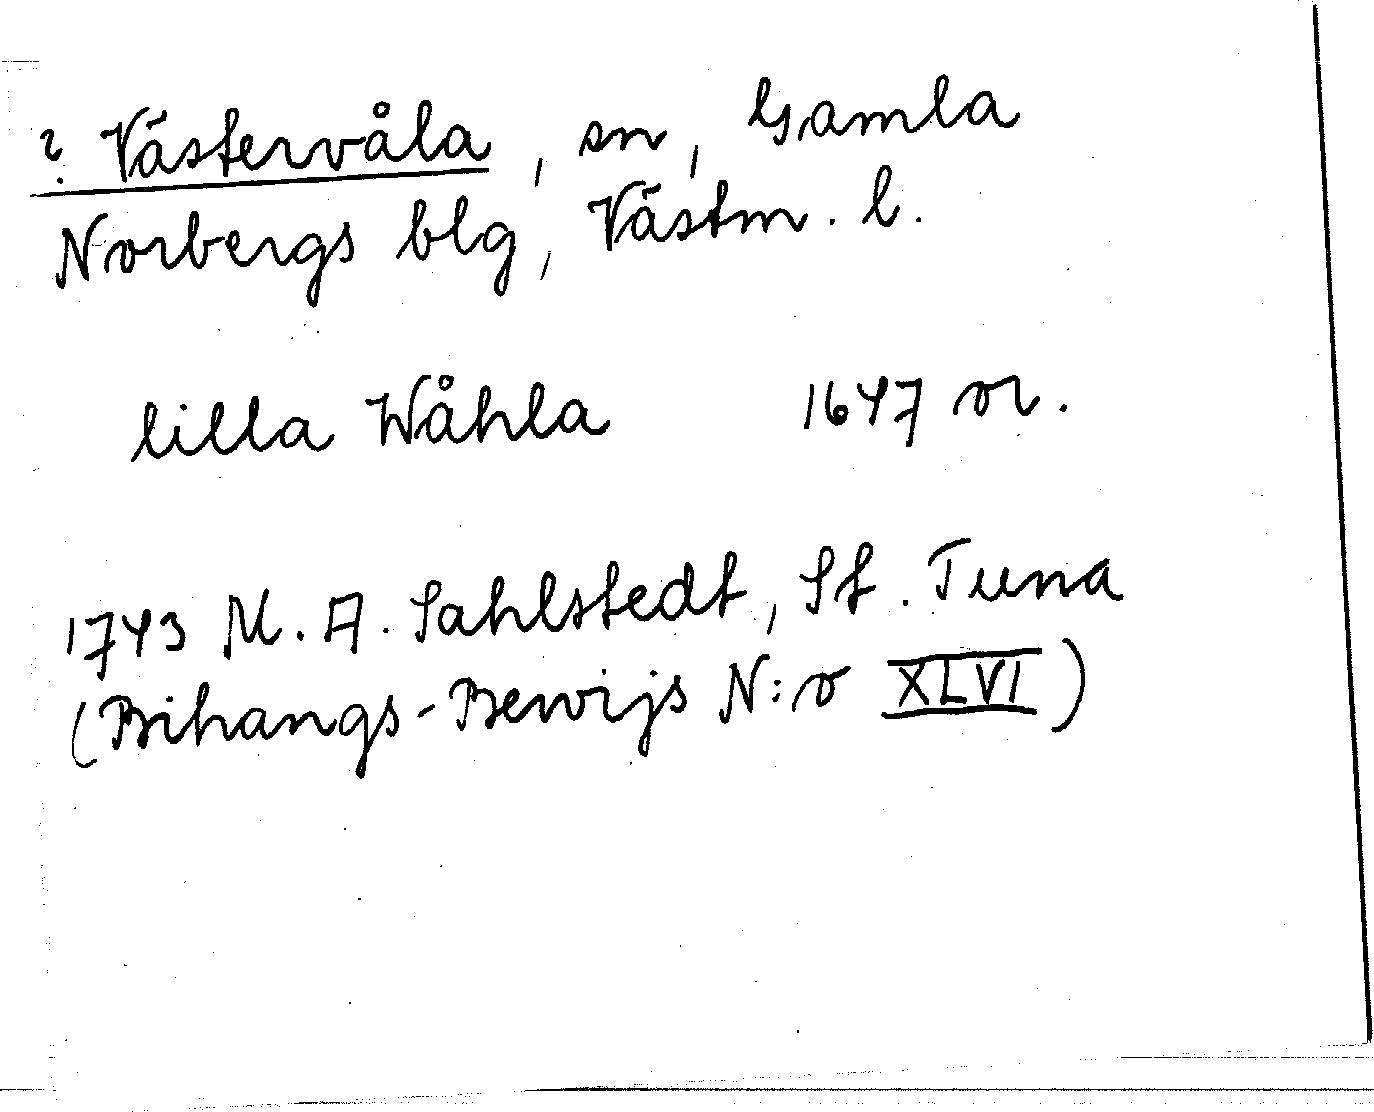 ? Västervåla, sn, Gamla
Norbergs blg, Västm. l.
lilla Wåhla 1647 or.
1743 M. A. Sahlstedt, St. Tuna
(Bihangs-Bewijs N:o XLVI)